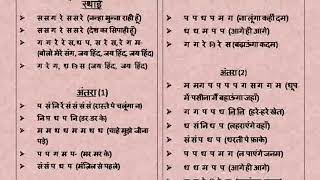 स्थाई
स स ग रे स स रे (नन्हा मुन्ना राही हूँ)
स स ग रे स स रे (देश का सिपाही हूँ)
ग ग रे रे स, ध प, स रे स, रे ग म-
(बोलो मेरे संग, जय हिंद, जय हिंद, जय हिंद)
ग रे ग, ध नि स (जय हिंद, जय हिंद)
अंतरा (1)
प सं नि रें सं सं सं सं (रास्ते पे चलूंगा न)
नि प ध प नि (डर डर के)
म म म ध ध म म ध ध (चाहे मुझे जीना
पड़े)
प प ग म प- (मर मर के)
सं सं प ध प (मंजिल से पहले)
प प ध प म ग (ना लूंगा कहीं दम)
ध प ध प म म (आगे ही आगे)
ग ग रे नि रे स (बढ़ाऊंगा कदम)
अंतरा(2)
म म ग प प प प ग स ग ग म (धूप
में पसीना मैं बहाऊंगा जहाँ)
ग म प ध प ग नि नि (हरे-हरे खेत)
ध सं नि ध प (लहराएंगे वहाँ)
सं सं प ध प (धरती पे फ़ाके)
प प ध प म ग (न पाएंगे जनम)
ध प ध प म म (आगे ही आगे)